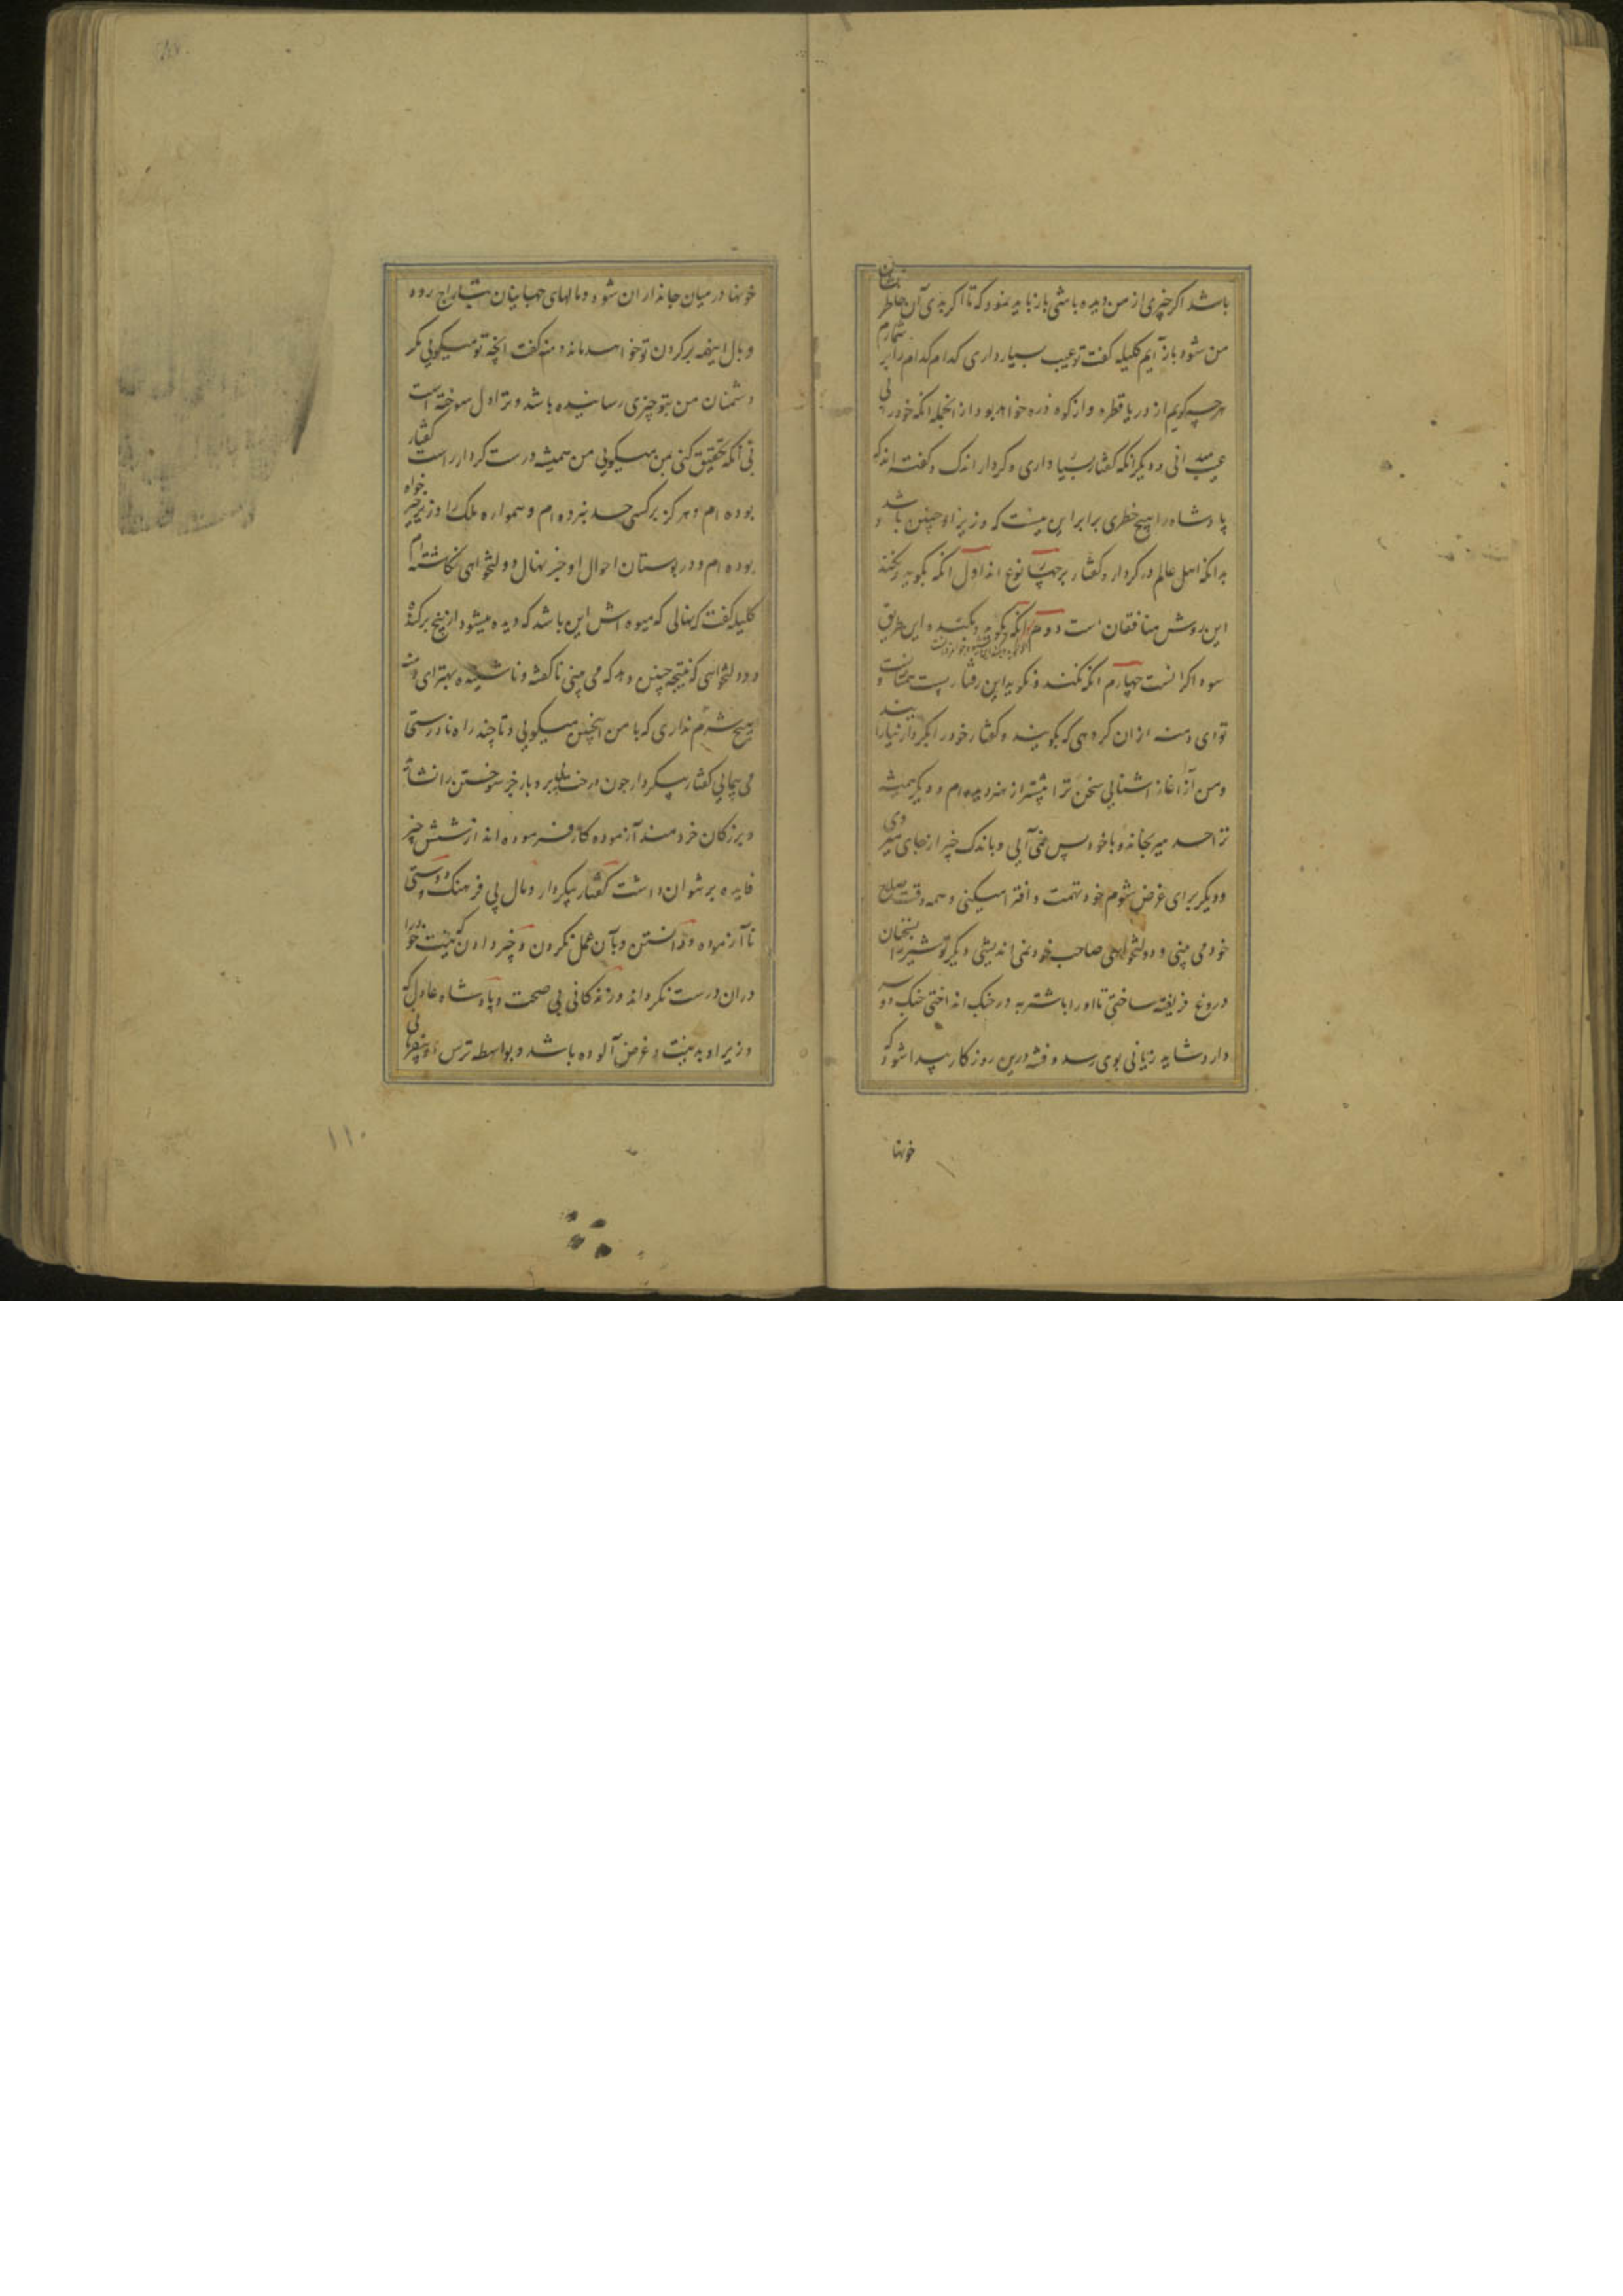 باشد اگر چیزی از من دیده باشی باز باید نمود که تا اگر بدی آن خاطر نشان
من شود باز آیم کلیله گفت تو عیب بسیار داری کدام کدام را بر شمارم
هرچه گویم از دریا قطره و از کوه ذره خواهد بود از انجمله انکه خود را بی
عیب میدانی و دیگر انکه گفتار بسیار داری و کردار اندک و گفته اند که
پادشاه را هیچ خطری برابر این نیست که وزیر او چنین باشد و
بدانکه اهل عالم در کردار و گفتار بر چهار نوع اند اول انکه بگوید و نکند
این روش منافقان است دوم انکه نگوید و بکند و این طریق
سوم انکه بگوید و بکند این
سوداگرانست چهارم انکه نکند و نگوید این رفتار پست همتانست و
تو ای دمنه از ان گروهی که بگویند و گفتار خود را بکردار نیارایند
و من از آغاز آشنایی سخن ترا بیشتر از هنر دیده ام و دیگر همیشه
ترا حسد میرنجاند و با خود پس نمی آیی و باندک چیز از جای میروی
و دیگر برای غرض شوم خود تهمت و افترا میکنی و همه وقت صلاح
خود می بینی و دولتخواهی صاحب خود نمی اندیشی دیگر تو شیر را بسخنان
دروغ فریفته ساختی تا او را با شتربه در جنگ انداختی جنگ دو سر
دارد شاید زیانی بوی رسد و فتنه درین روزگار پیدا شود که
خونها
خونها در میان جانداران شود و مالهای جهانیان بتاراج رود
وبال اینهمه بر گردن تو خواهد ماند دمنه گفت انچه تو میگویی مگر
دشمنان من بتو چیزی رسانیده باشد و ترا دل سوخته است
بی آنکه تحقیق کنی بمن میگویی من همیشه درست کردار راست گفتار
بوده ام و هرگز بر کسی حسد نبرده ام و همواره ملک را وزیر خیر خواه
بوده ام و در بوستان احوال او جز نهال دولتخواهی نکاشته ام
کلیله گفت که نهالی که میوه اش این باشد که دیده میشود از بیخ برکنده
و دولتخواهی که نتیجه چنین دهد که می بینی ناگفته و ناشنیده بهتر ای دمنه
هیچ شرم نداری که با من اینچنین میگویی و تا چند راه نادرستی
می پیمایی گفتار بیکردار چون درخت بی بر و بار جز سوختن را نشاید
و بزرگان خردمند آزموده کار فرموده اند از شش چیز
فایده بر نتوان داشت گفتار بیکردار و مال بی فرهنگ و دوستی
ناآزموده و دانستن و بآن عمل نکردن و چیز دادن که نیت خود را
در ان درست نگرداند و زندگانی بی صحت و پادشاه عادل که
وزیر او بدنیت و غرض آلوده باشد و بواسطه ترس
۱۱۰